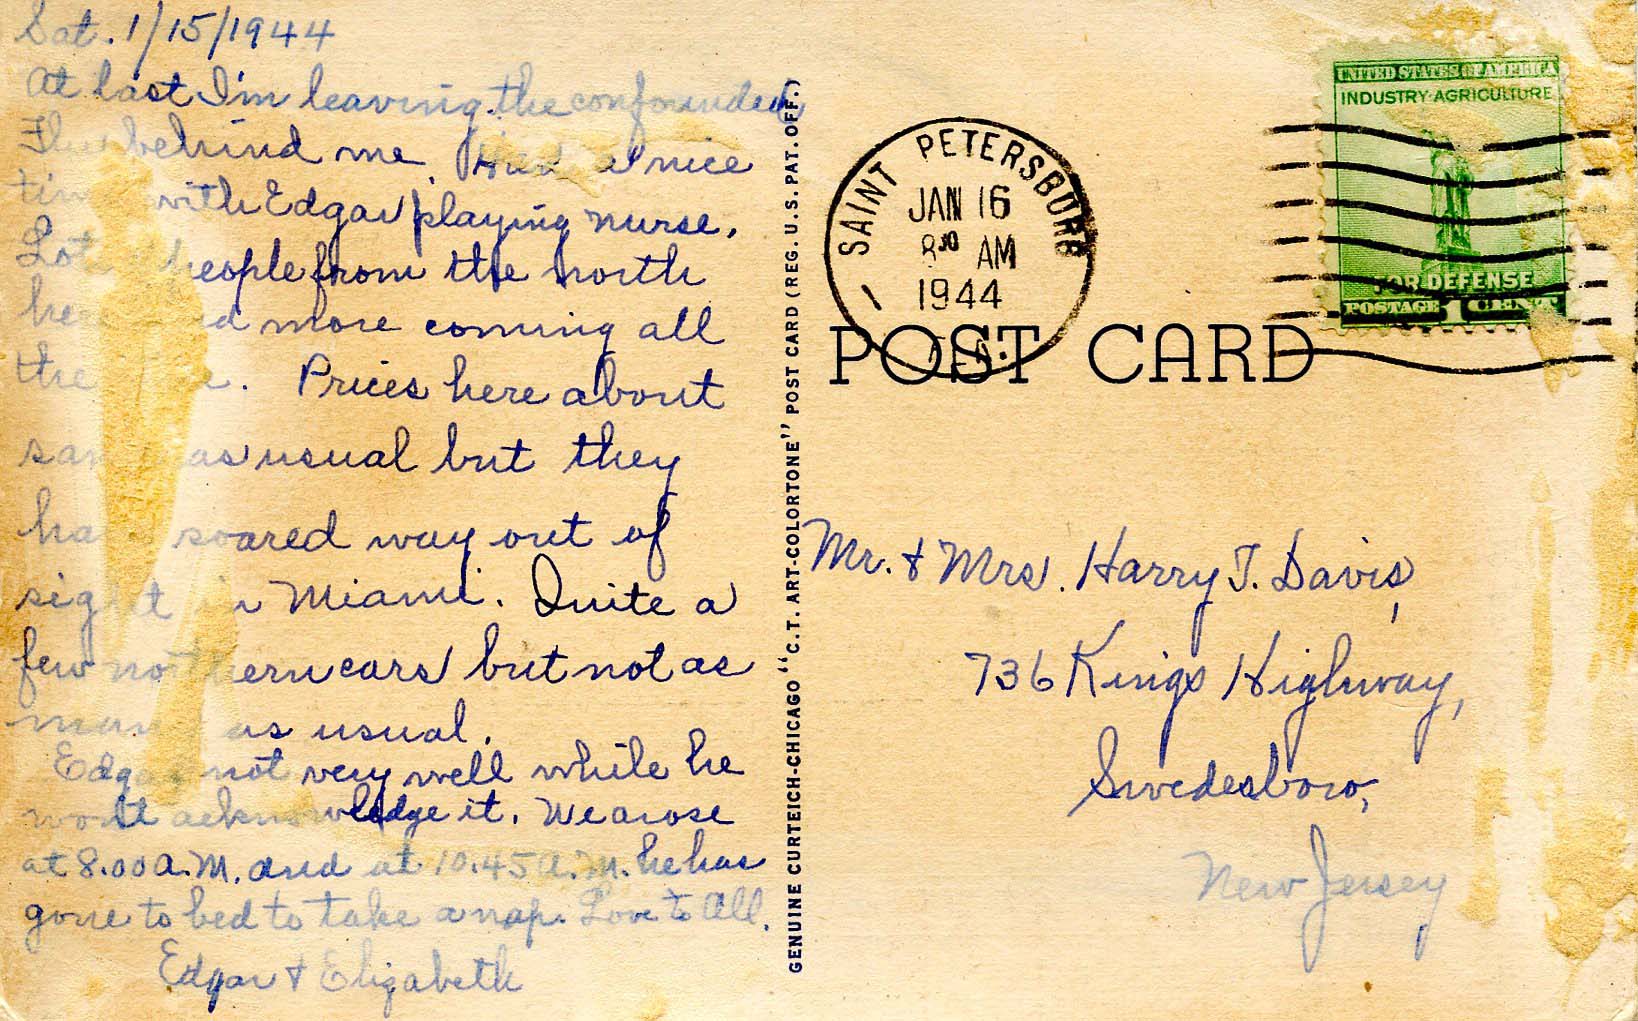 Sat. 1/15/1944
At last I'm leaving the confounded
Flu behind me. Had a nice
time with Edgar playing nurse.
Lots people from the north
here and more coming all
the time. Prices here about
same as usual but they
have soared way out of
sight in Miami. Quite a
few northern cars but not as
many as usual.
Edgar not very well while he
wont acknowledge it. We arose
at 8.00 A.M. and at 10.45 A.M. he has
gone to bed to take a nap. Love to All.
Edgar & Elizabeth
GENUINE CURTEICH-CHICAGO "C.T. ART-COLORTONE" POST CARD (REG. U.S. PAT. OFF.)
SAINT PETERSBURG
JAN 16
8 30 AM
1944
FLA.
1
UNITED STATES OF AMERICA
INDUSTRY-AGRICULTURE
FOR DEFENSE
POSTAGE 1 CENT
POST CARD
Mr. & Mrs. Harry T. Davis,
736 Kings Highway,
Swedesboro,
New Jersey